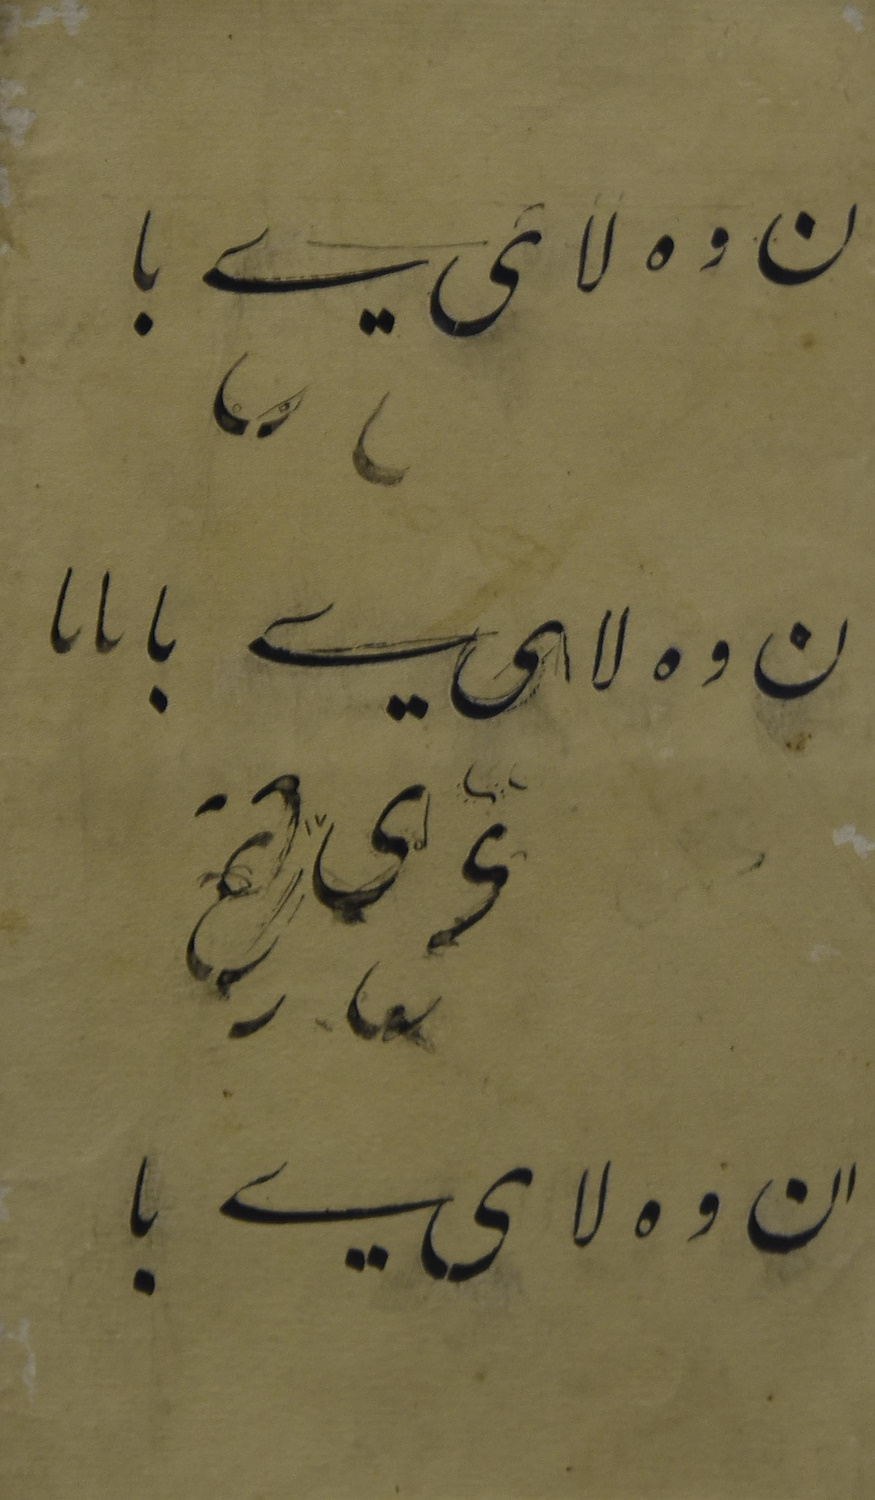 ن و ه لا ی یے با
ن و ه لا ی یے با با با
ی
ن و ه لا ی یے با